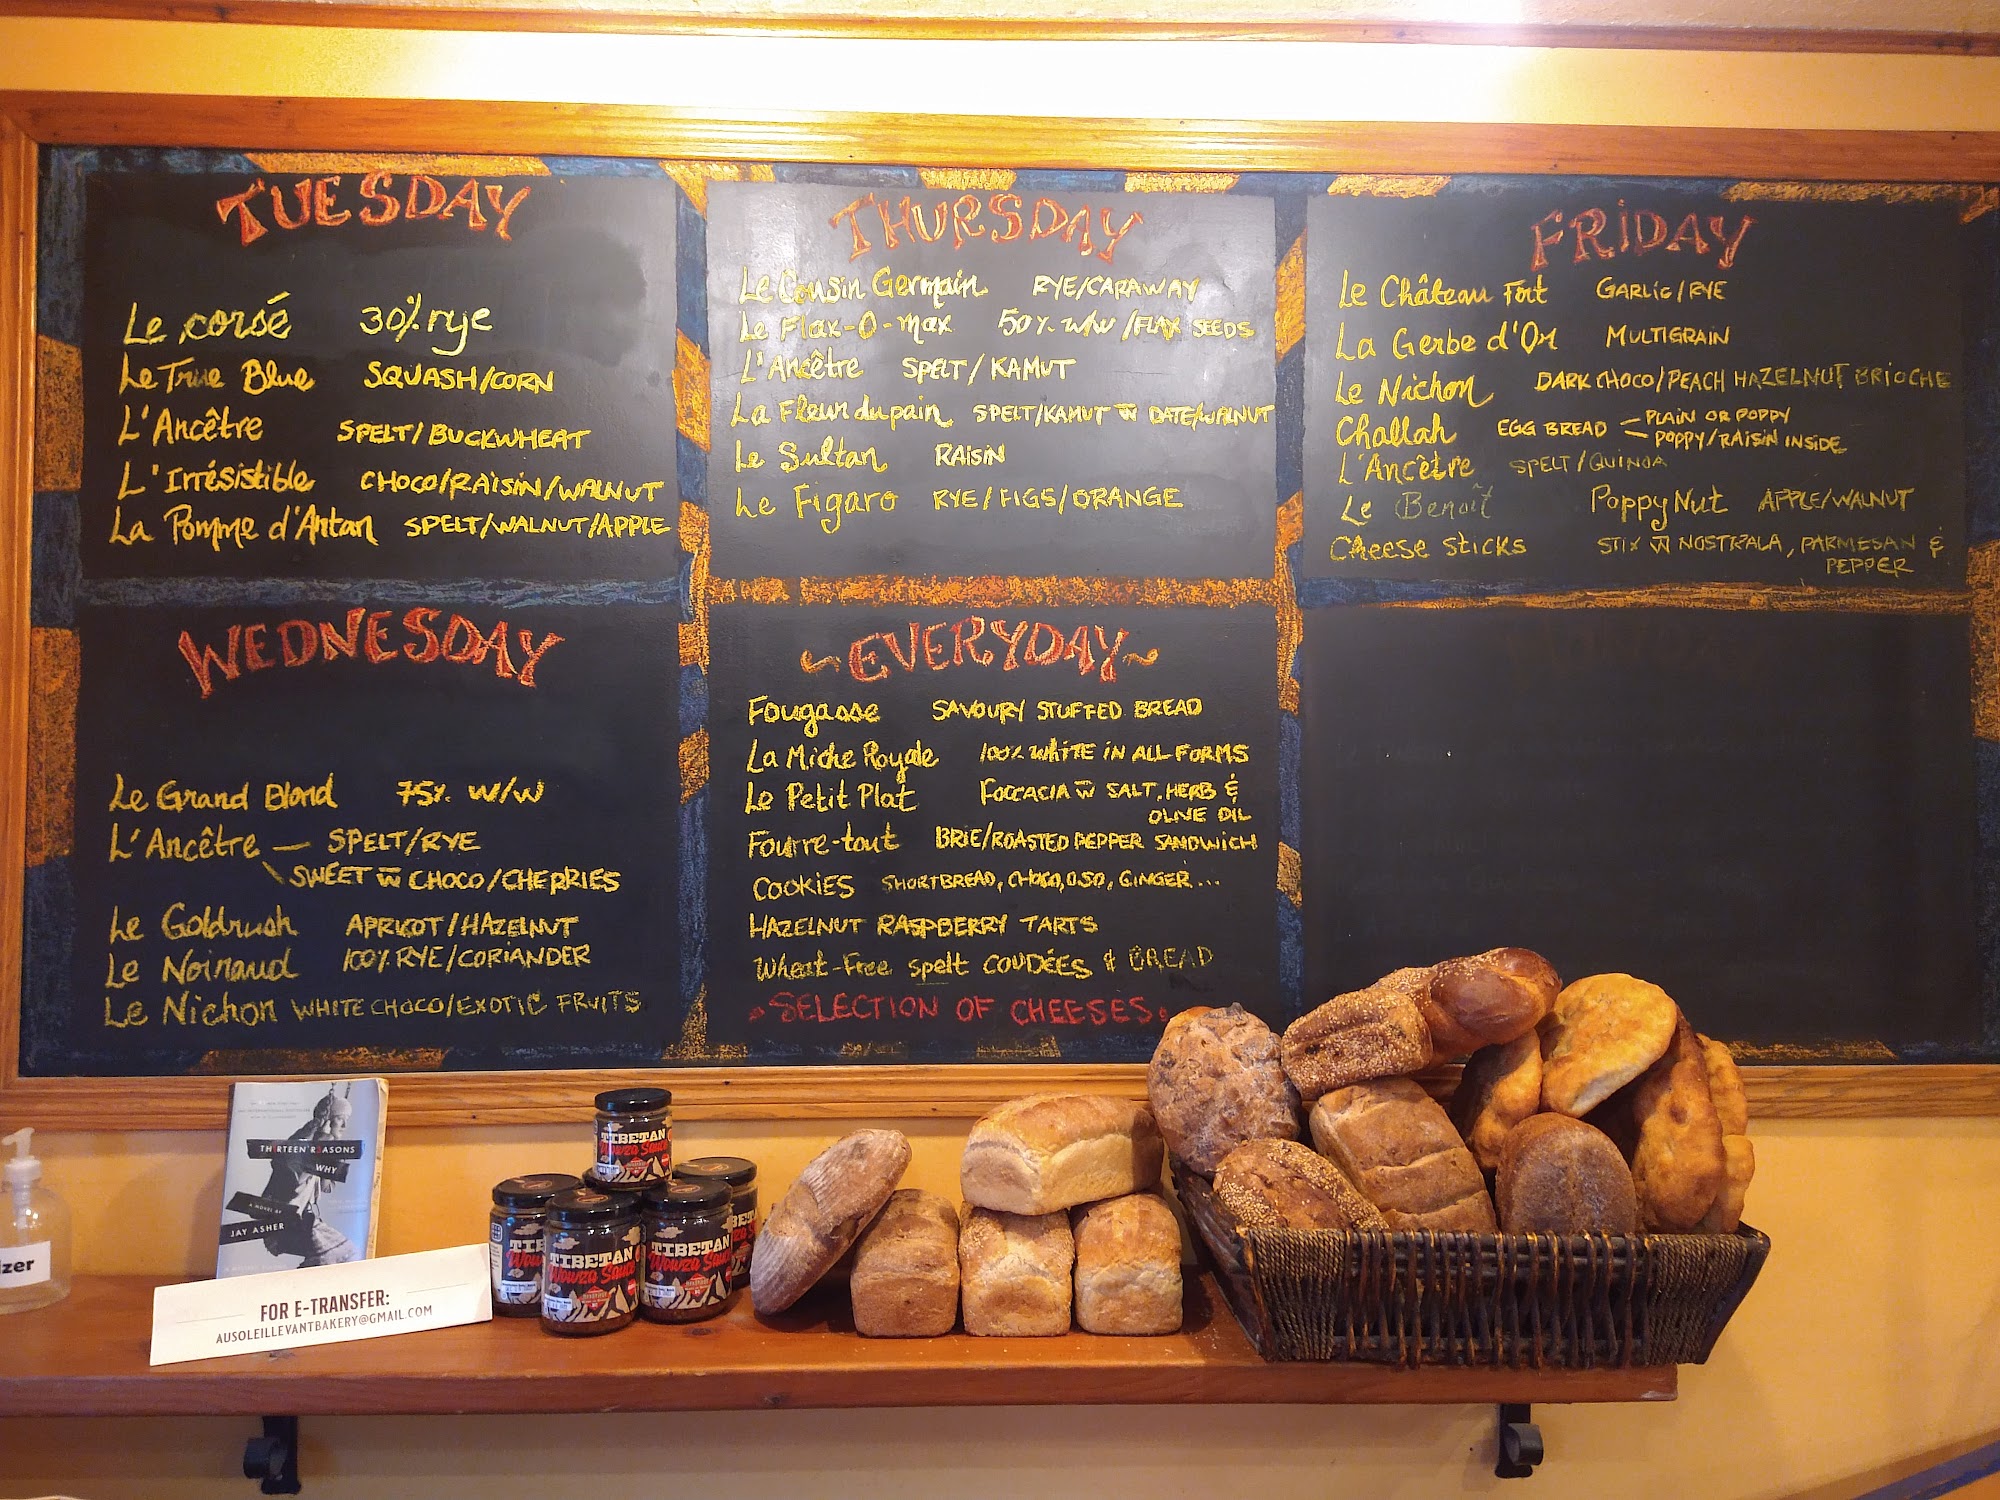 TUESDAY
Le corsé 30% rye
Le True Blue SQUASH/CORN
L'Ancêtre SPELT/BUCKWHEAT
L'Irrésistible CHOCO/RAISIN/WALNUT
La Pomme d'Antan SPELT/WALNUT/APPLE
WEDNESDAY
Le Grand Blond 75% W/W
L'Ancêtre — SPELT/RYE
SWEET w CHOCO/CHERRIES
Le Goldrush APRICOT/HAZELNUT
Le Noiraud 100% RYE/CORIANDER
Le Nichon WHITE CHOCO/EXOTIC FRUITS
THURSDAY
Le Cousin Germain RYE/CARAWAY
Le Flax-O-max 50% w/w /FLAX SEEDS
L'Ancêtre SPELT/KAMUT
La Fleur du pain SPELT/KAMUT w DATE/WALNUT
Le Sultan RAISIN
Le Figaro RYE/FIGS/ORANGE
EVERYDAY
Fougasse SAVOURY STUFFED BREAD
La Miche Royale 100% WHITE IN ALL FORMS
Le Petit Plat FOCCACIA w SALT, HERB &
OLIVE OIL
Fourre-tout BRIE/ROASTED PEPPER SANDWICH
COOKIES SHORTBREAD, CHOCO, OSO, GINGER...
HAZELNUT RASPBERRY TARTS
Wheat-Free spelt COUDÉES & BREAD
SELECTION OF CHEESES
FRIDAY
Le Château Fort GARLIC/RYE
La Gerbe d'Or MULTIGRAIN
Le Nichon DARK CHOCO/PEACH HAZELNUT BRIOCHE
Challah EGG BREAD — PLAIN OR POPPY
— POPPY/RAISIN INSIDE
L'Ancêtre SPELT/QUINOA
Le Benoît PoppyNut APPLE/WALNUT
Cheese sticks STIX w NOSTRALA, PARMESAN &
PEPPER
zer
THIRTEEN R3ASONS
WHY
A NOVEL BY
JAY ASHER
FOR E-TRANSFER:
AUSOLEILLEVANTBAKERY@GMAIL.COM
TIBETAN
Wowza Sauce
TIBETAN
Wowza Sauce
TIBETAN
Wowza Sauce